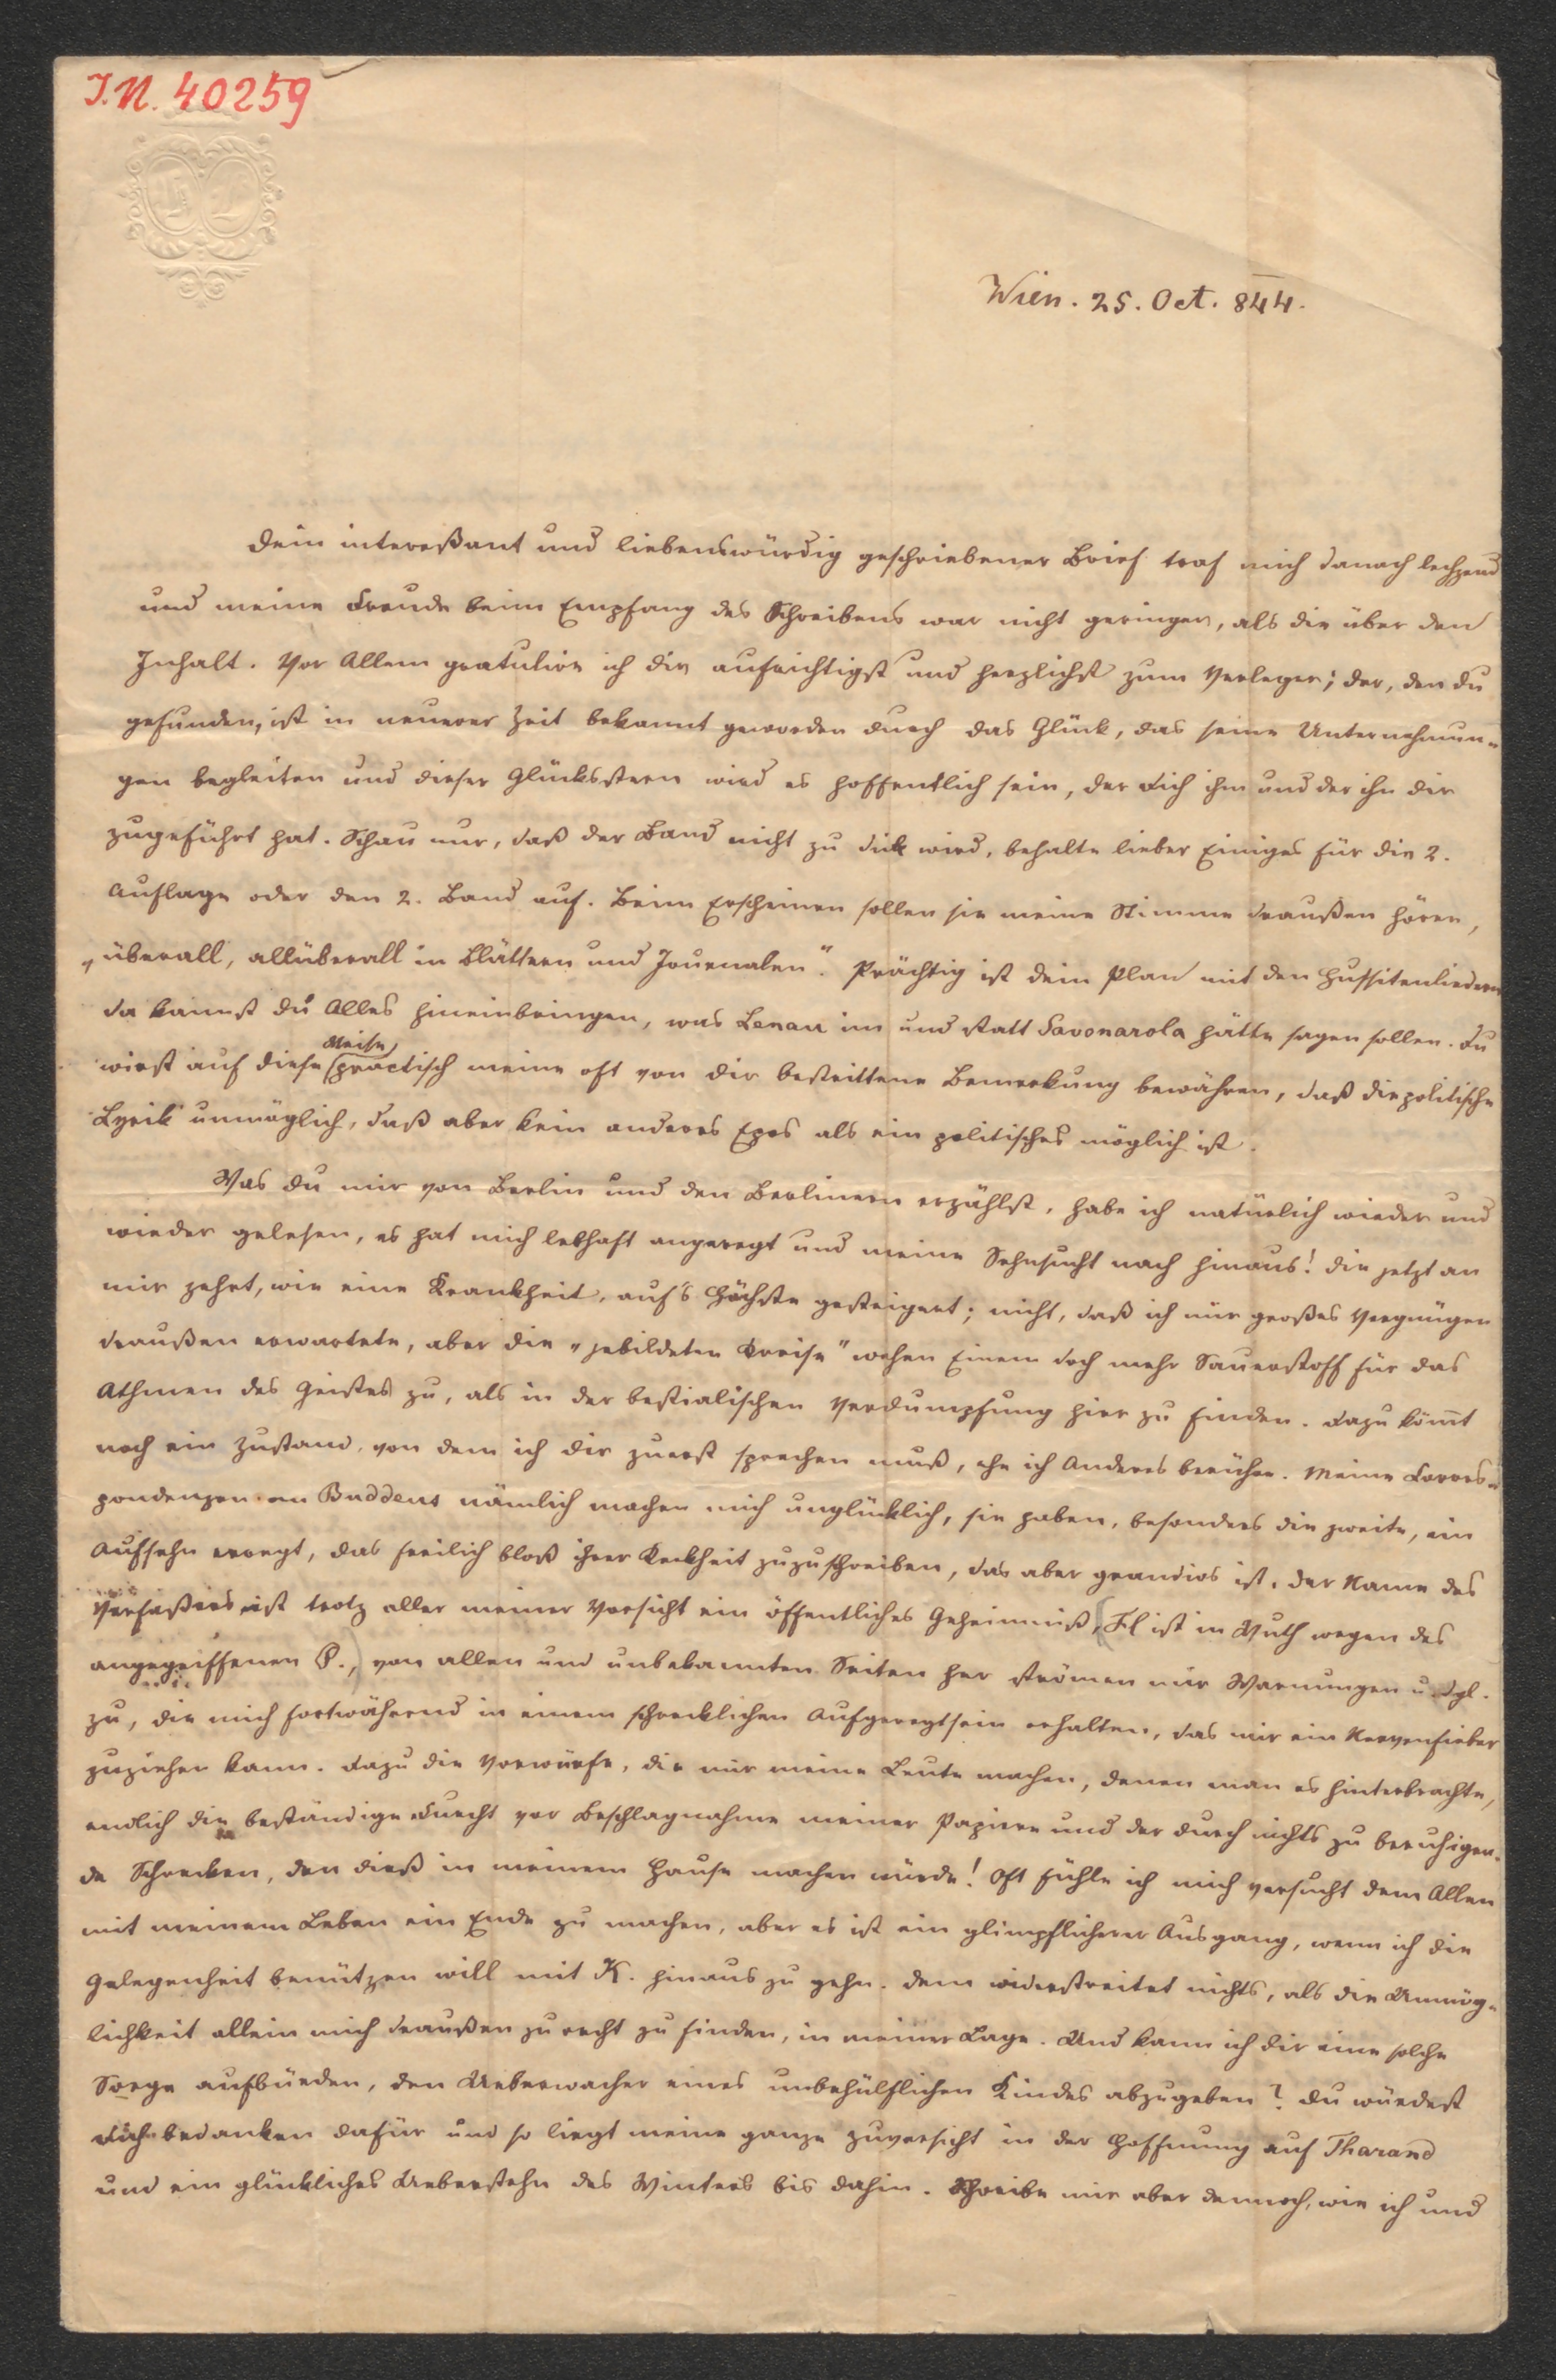 J.N. 40259
Wien. 25. Oct. 844.
Dein intereßant und liebenswürdig geschriebener Brief traf mich danach lechzend
und meine Freude beim Empfang des Schreibens war nicht geringer, als die über den
Inhalt. Vor Allem gratulire ich dir aufrichtigst und herzlichst zum Verleger; der, den du
gefunden, ist in neuerer Zeit bekannt geworden durch das Glück, das seine Unternehmun-
gen begleiten und dieser Glücksstern wird es hoffentlich sein, der dich ihm und der ihn dir
zugeführt hat. Schau nur, daß der Band nicht zu dick wird, behalte lieber Einiges für die 2.
Auflage oder den 2. Band auf. Beim Erscheinen sollen sie meine Stimme draußen hören,
„überall, allüberall in Blättern und Journalen". Prächtig ist dein Plan mit den Hussitenliedern
da kannst du Alles hineinbringen, was Lenau im und statt Savonarola hätte sagen sollen. Du
wirst auf diese Weise practisch meine oft von dir bestrittene Bemerkung bewähren, daß die politische
Lyrik unmöglich, daß aber kein anderes Epos als ein politisches möglich ist.
Was du mir von Berlin und den Berlinern erzählst, habe ich natürlich wieder und
wieder gelesen, es hat mich lebhaft angeregt und meine Sehnsucht nach hinaus! die jetzt an
mir zehrt, wie eine Krankheit, auf's Höchste gesteigert; nicht, daß ich mir großes Vergnügen
draußen erwartete, aber die „jebildeten Kreise" wehen Einem doch mehr Sauerstoff für das
Athmen des Geistes zu, als in der bestialischen Verdumpfung hier zu finden. Dazu kömt
noch ein Zustand, von dem ich dir zuerst sprechen muß, ehe ich Anderes berühre. Meine Corres-
pondenzen an Buddeus nämlich machen mich unglücklich, sie haben, besonders die zweite, ein
Aufsehn erregt, das freilich bloß ihrer Keckheit zuzuschreiben, das aber grandios ist. Der Name des
Verfaßers ist trotz aller meiner Vorsicht ein öffentliches Geheimniß, (Fl ist in Wuth wegen des
angegriffenen P.,) von allen und unbekannten Seiten her strömen mir Warnungen u. dgl.
zu, die mich fortwährend in einem schrecklichen Aufgeregtsein erhalten, das mir ein Nervenfieber
zuziehen kann. Dazu die Vorwürfe, die mir meine Leute machen, denen man es hinterbrachte,
endlich die beständige Furcht vor Beschlagnahme meiner Papiere und der durch nichts zu beruhigen-
de Schrecken, den dieß in meinem Hause machen würde! Oft fühle ich mich versucht dem Allen
mit meinem Leben ein Ende zu machen, aber es ist ein glimpflicherer Ausgang, wenn ich die
Gelegenheit benützen will mit K. hinaus zu gehn. Dem widerstreitet nichts, als die Unmög-
lichkeit allein mich draußen zu recht zu finden, in meiner Lage. Und kann ich dir eine solche
Sorge aufbürden, den Ueberwacher eines unbehülflichen Kindes abzugeben? Du würdest
dich bedanken dafür und so liegt meine ganze Zuversicht in der Hoffnung auf Tharand
und ein glückliches Ueberstehn des Winters bis dahin. Schreibe mir aber dennoch, wie ich und